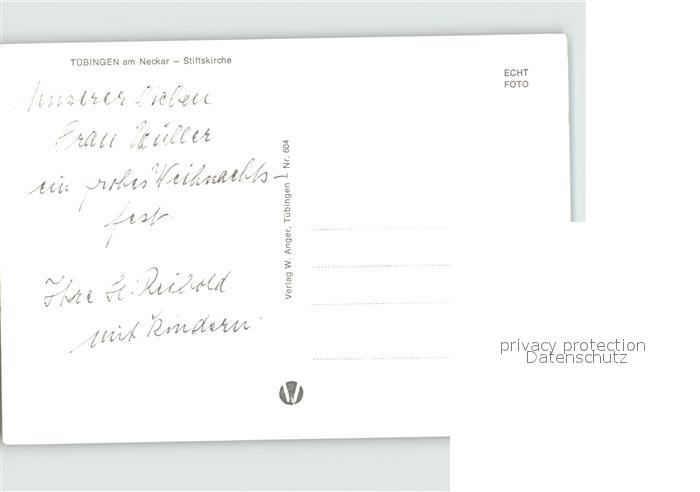 TÜBINGEN am Neckar – Stiftskirche
ECHT
FOTO
Unserer lieben
Frau Wüller
ein frohes Weihnachts-
fest.
Ihre H. Reibold
mit Kindern.
Verlag W. Anger, Tübingen Nr. 604
privacy protection
Datenschutz